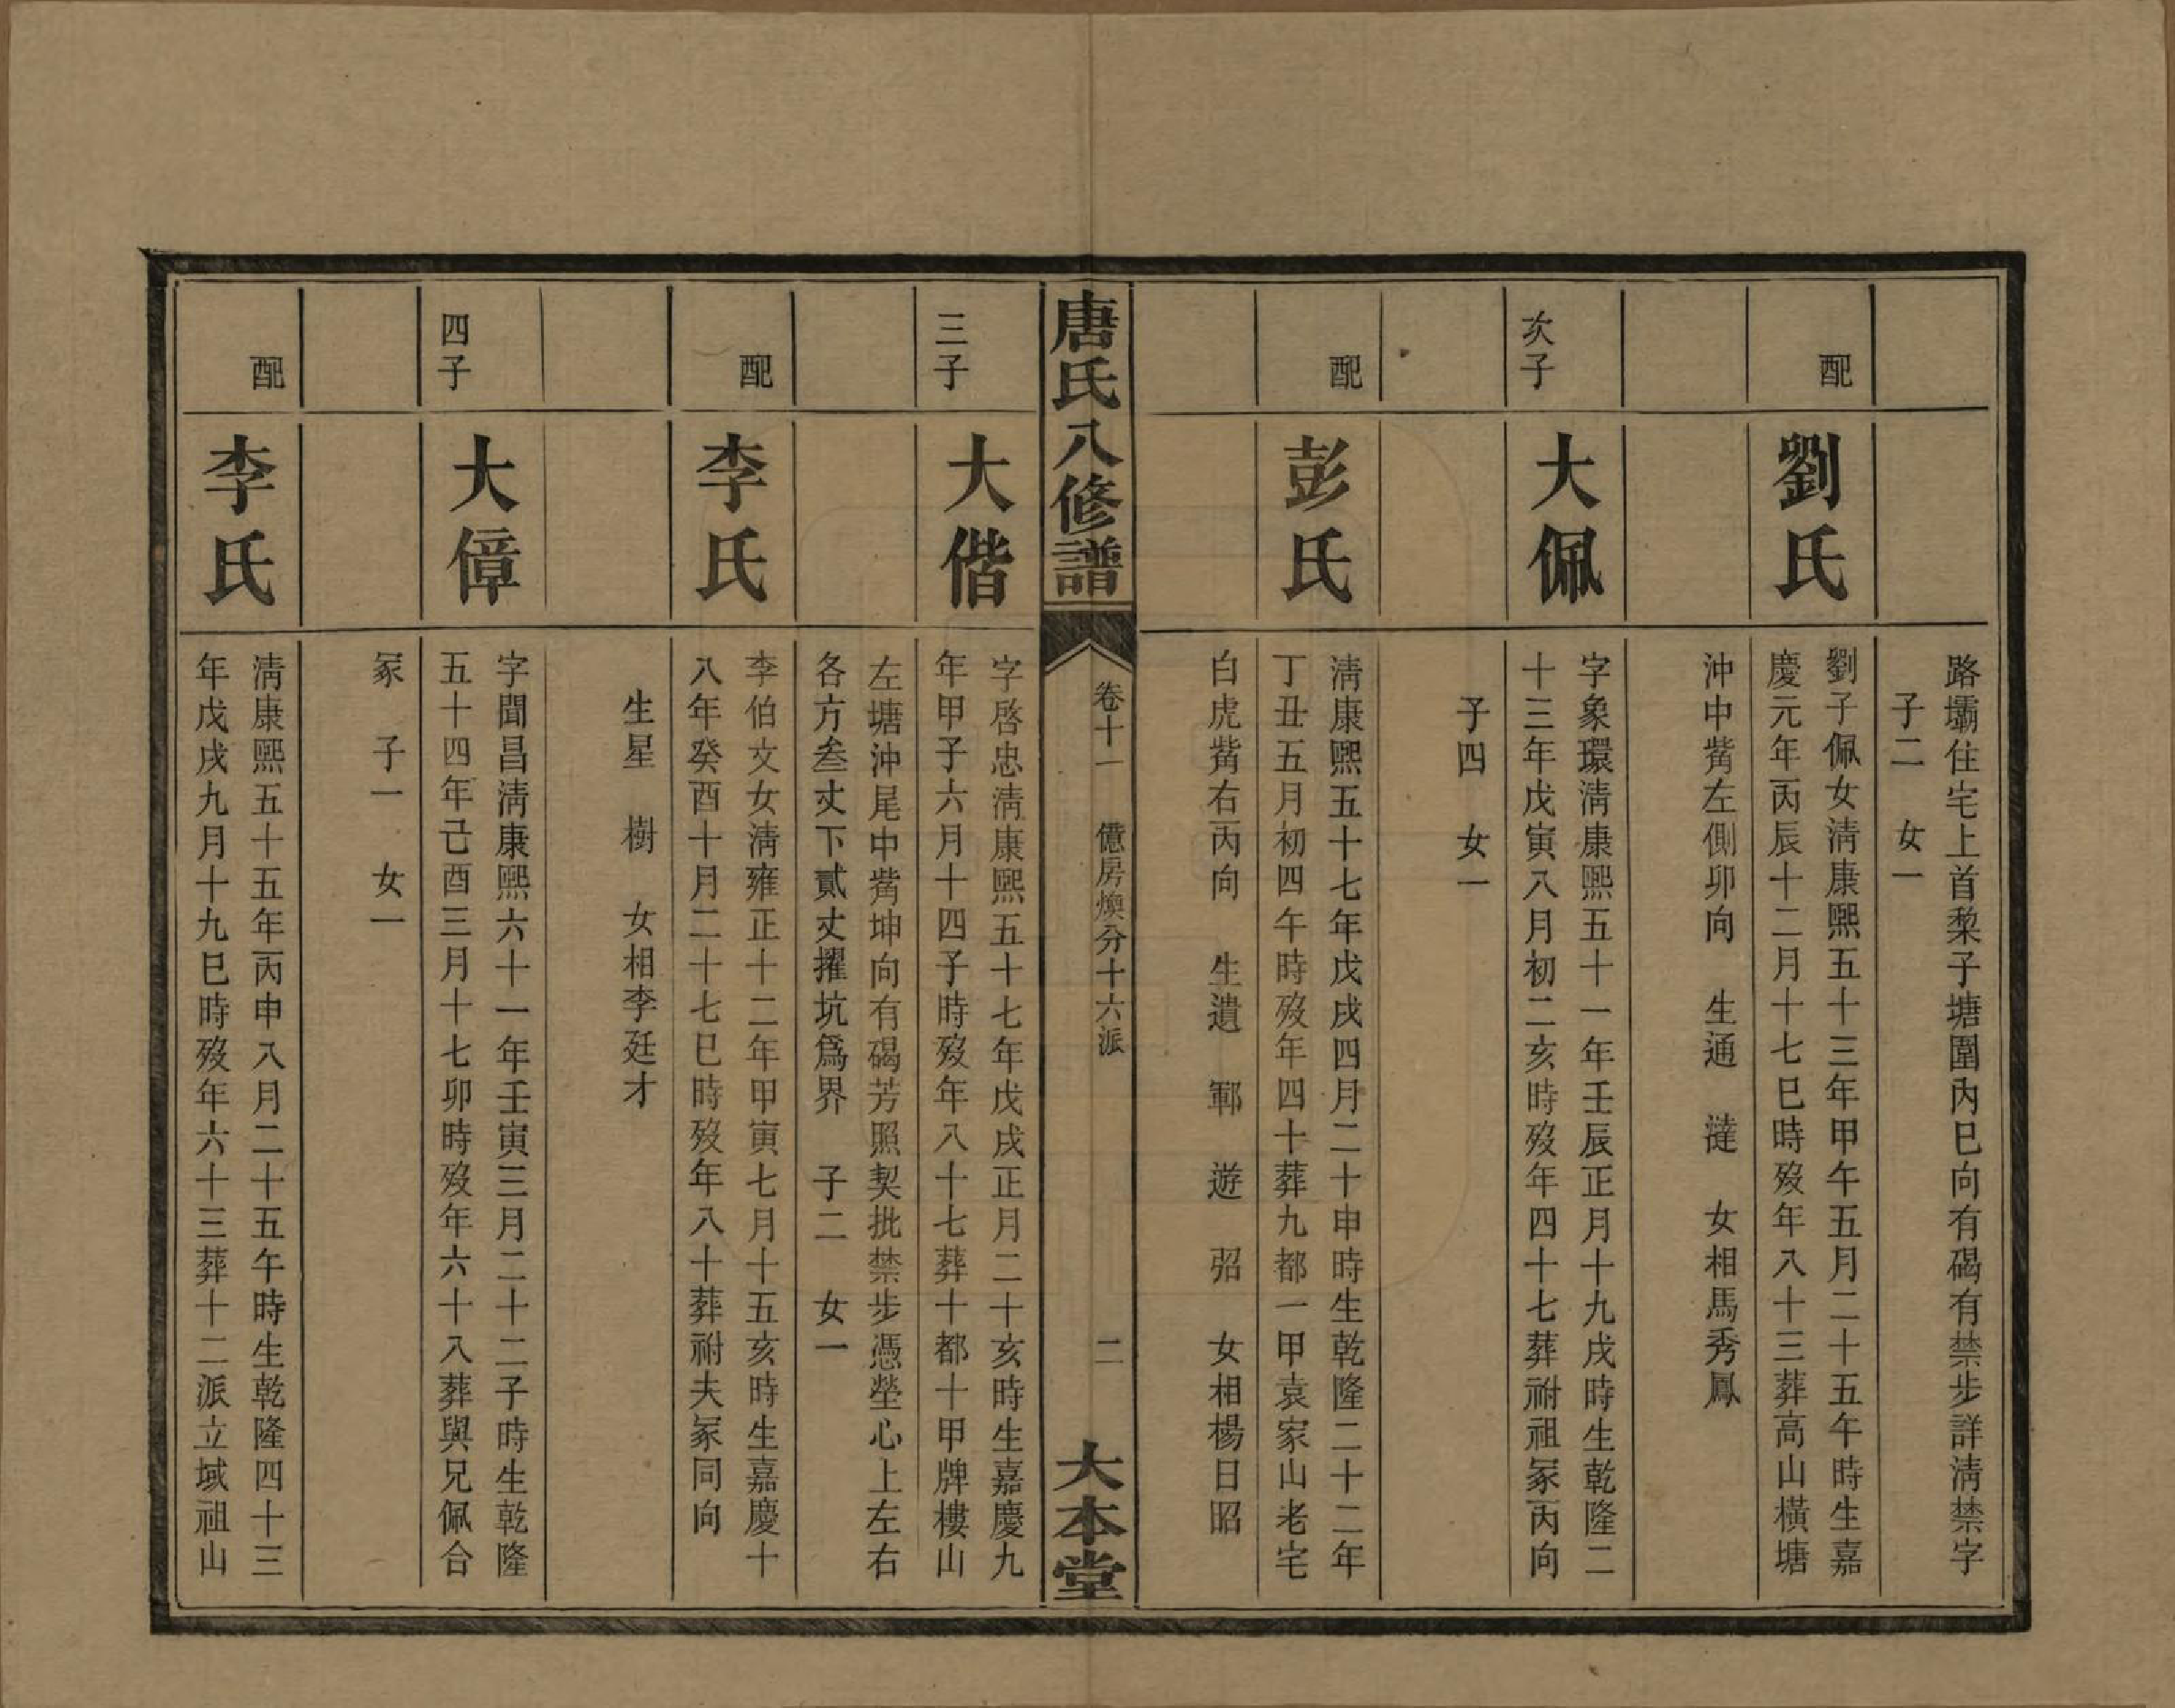 路壩住宅上首棃子塘圍內巳向有碣有禁步詳淸禁字
子二　女一
配
劉氏
劉子佩女淸康熙五十三年甲午五月二十五午時生嘉
慶元年丙辰十二月十七巳時歿年八十三葬高山橫塘
沖中觜左側卯向　生通　澾　女相馬秀鳳
次子
大佩
字象環淸康熙五十一年壬辰正月十九戌時生乾隆二
十三年戊寅八月初二亥時歿年四十七葬祔祖冢丙向
子四　女一
配
彭氏
淸康熙五十七年戊戌四月二十申時生乾隆二十二年
丁丑五月初四午時歿年四十葬九都一甲袁家山老宅
白虎觜右丙向　生遺　鄆　遊　弨　女相楊日昭
唐氏八修譜
卷十一　億房煥分十六派
二
大本堂
三子
大偕
字啓忠淸康熙五十七年戊戌正月二十亥時生嘉慶九
年甲子六月十四子時歿年八十七葬十都十甲牌樓山
左塘沖尾中觜坤向有碣芳照契批禁步憑塋心上左右
各方叁丈下貳丈擢坑爲界　子二　女一
配
李氏
李伯文女淸雍正十二年甲寅七月十五亥時生嘉慶十
八年癸酉十月二十七巳時歿年八十葬祔夫冢同向
生星　樹　女相李廷才
四子
大偉
字聞昌淸康熙六十一年壬寅三月二十二子時生乾隆
五十四年己酉三月十七卯時歿年六十八葬與兄佩合
冢　子一　女一
配
李氏
淸康熙五十五年丙申八月二十五午時生乾隆四十三
年戊戌九月十九巳時歿年六十三葬十二派立域祖山